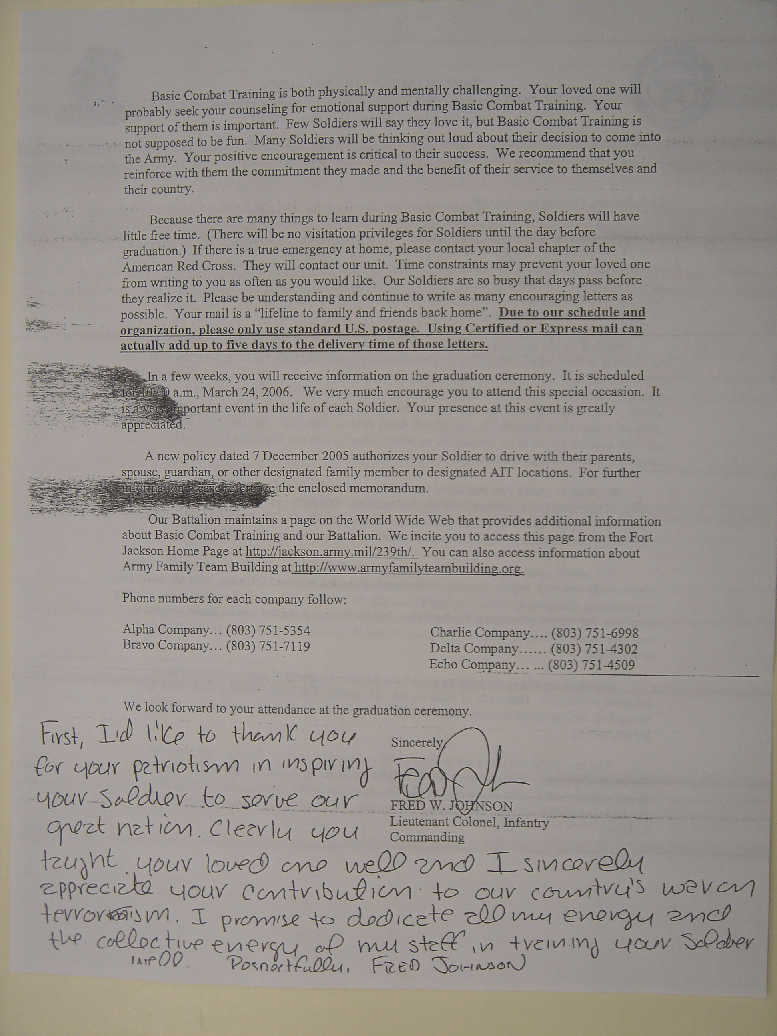 Basic Combat Training is both physically and mentally challenging. Your loved one will
probably seek your counseling for emotional support during Basic Combat Training. Your
support of them is important. Few Soldiers will say they love it, but Basic Combat Training is
not supposed to be fun. Many Soldiers will be thinking out loud about their decision to come into
the Army. Your positive encouragement is critical to their success. We recommend that you
reinforce with them the commitment they made and the benefit of their service to themselves and
their country.
Because there are many things to learn during Basic Combat Training, Soldiers will have
little free time. (There will be no visitation privileges for Soldiers until the day before
graduation.) If there is a true emergency at home, please contact your local chapter of the
American Red Cross. They will contact our unit. Time constraints may prevent your loved one
from writing to you as often as you would like. Our Soldiers are so busy that days pass before
they realize it. Please be understanding and continue to write as many encouraging letters as
possible. Your mail is a "lifeline to family and friends back home". Due to our schedule and
organization, please only use standard U.S. postage. Using Certified or Express mail can
actually add up to five days to the delivery time of those letters.
In a few weeks, you will receive information on the graduation ceremony. It is scheduled
a.m., March 24, 2006. We very much encourage you to attend this special occasion. It
is a very important event in the life of each Soldier. Your presence at this event is greatly
appreciated.
A new policy dated 7 December 2005 authorizes your Soldier to drive with their parents,
spouse, guardian, or other designated family member to designated AIT locations. For further
the enclosed memorandum.
Our Battalion maintains a page on the World Wide Web that provides additional information
about Basic Combat Training and our Battalion. We incite you to access this page from the Fort
Jackson Home Page at http://jackson.army.mil/239th/. You can also access information about
Army Family Team Building at http://www.armyfamilyteambuilding.org.
Phone numbers for each company follow:
Alpha Company... (803) 751-5354
Bravo Company... (803) 751-7119
Charlie Company.... (803) 751-6998
Delta Company...... (803) 751-4302
Echo Company... ... (803) 751-4509
We look forward to your attendance at the graduation ceremony.
Sincerely,
FRED W. JOHNSON
Lieutenant Colonel, Infantry
Commanding
First, I'd like to thank you
for your patriotism in inspiring
your soldier to serve our
great nation. Clearly you
taught your loved one well and I sincerely
appreciate your contribution to our country's war on
terrorism. I promise to dedicate all my energy and
the collective energy of my staff in training your soldier
Fred Johnson